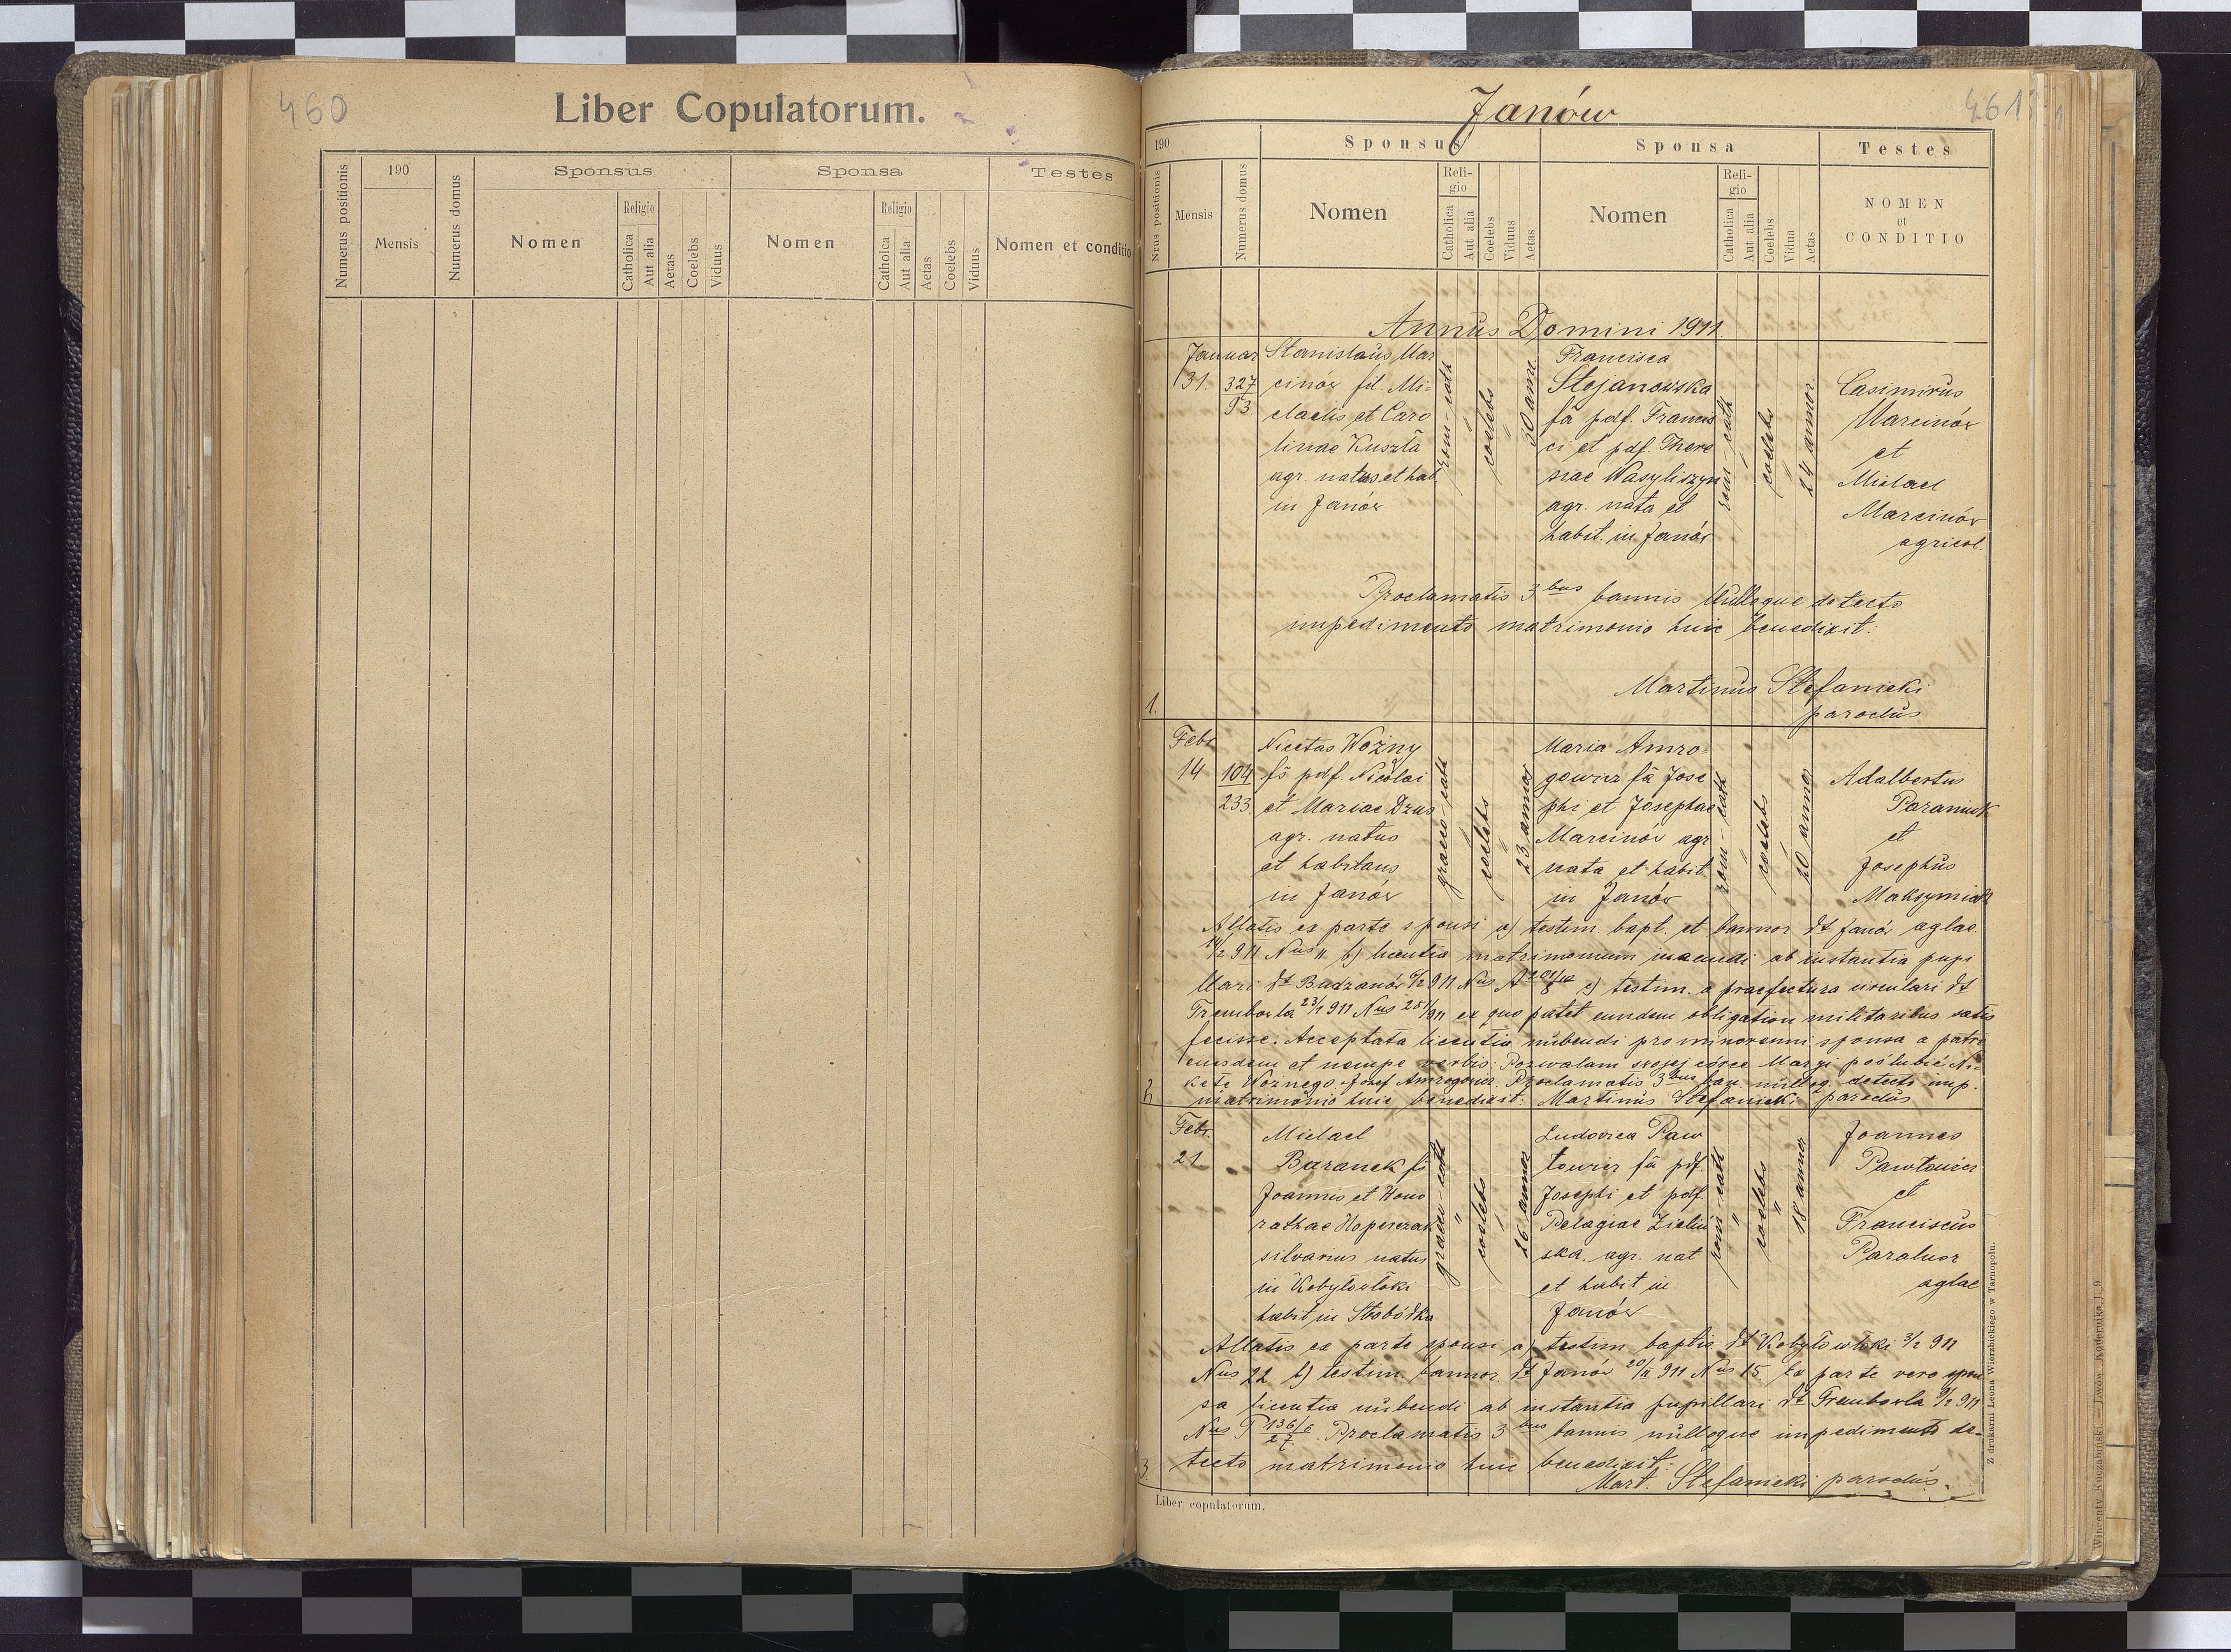 460
Liber Copulatorum.
Numerus positionis
190
Mensis
Numerus domus
Sponsus
Nomen
Religio
Catholica
Aut alia
Aetas
Coelebs
Viduus
Sponsa
Nomen
Religio
Catholica
Aut alia
Aetas
Coelebs
Viduus
Testes
Nomen et conditio
Janów
461
190
Nrus positionis
Mensis
Numerus domus
Sponsus
Nomen
Religio
Catholica
Aut alia
Coelebs
Viduus
Aetas
Sponsa
Nomen
Religio
Catholica
Aut alia
Coelebs
Vidua
Aetas
Testes
NOMEN
et
CONDITIO
Annus Domini 1911.
1.
Januar
31.
327
93
Stanislaus Mar
cinów fil. Mi-
chaelis et Caro
linae Kuszla
agr. natus et hab
in Janów
rom-cath
coelebs
30 ann.
Francisca
Stojanowska
fa pdf. Francis
ci et pdf. There
siae Wasyliszyn
agr. nata et
habit. in Janów
rom-cath
coelebs
24 annor.
Casimirus
Marcinów
et
Michael
Marcinów
agricol.
Proclamatis 3 bus bannis nulloque detecto
impedimento matrimonio huic benedixit:
Martinus Stefanicki
parochus
2.
Febr
14
104
233
Nicetas Woźny
fs pdf. Nicolai
et Mariae Dzus
agr. natus
et habitans
in Janów
graeco-cath
coelebs
23 annor
Maria Amro-
gowicz fa Jose
phi et Josephae
Marcinów agr
nata et habit
in Janów
rom-cath
coelebs
20 annor
Adalbertus
Paraniuk
et
Josephus
Maksymiak
Allatis ex parte sponsi a) testim. bapt. et bannor dt Janów
14/2 911 Nus 11 b) licentia matrimonium ineundi ab instantia pupi
llari dt Budzanów 911 Nus c) testim. a praefectura circulari dt
Trembowla 23/1 911 Nus ex quo patet eundem obligation militaribus satis
fecisse. Acceptata licentia nubendi pro minorenni sponsa a patre
eiusdem et nempe verbis: Pozwalam swojej córce Maryi poślubić Ni-
ketę Woźnego. Józef Amrogowicz. Proclamatis 3 bus ban. nulloq. detecto imp.
matrimonio huic benedixit: Martinus Stefanicki parochus
3.
Febr.
21
Michael
Baranek fs
Joannis et Hono
rathae
silvanus natus
in Kobyłowłoki
habit in Słobódka
graeco-cath
"
coelebs
26 annor
Ludovica Paw
łowicz fa pdf.
Josephi et pdf.
Pelagiae Zieliń
ska agr. nat
et habit in
Janów
rom-cath
"
coelebs
"
18 annor
Joannes
Pawłowicz
et
Franciscus
Paraluor
aglae
Allatis ex parte sponsi a) testim. baptis. dt Kobyłowłoki 3/2 911
Nus 22 b) testim. bannor. dt Janów 20/II 911 Nus 15 Ex parte vero spon
sa licentia nubendi ab instantia pupillari dt Trembowla 9/2 911
Nus P 136/6
27. Proclamatis 3 bus bannis nulloque impedimento de-
tecto matrimonio huic benedixit:
Mart. Stefanicki parochus.
Liber copulatorum.
Z drukarni Leona Wierzbickiego w Tarnopolu.
Wincenty Kuczabiński – Lwów Kopernika l. 9